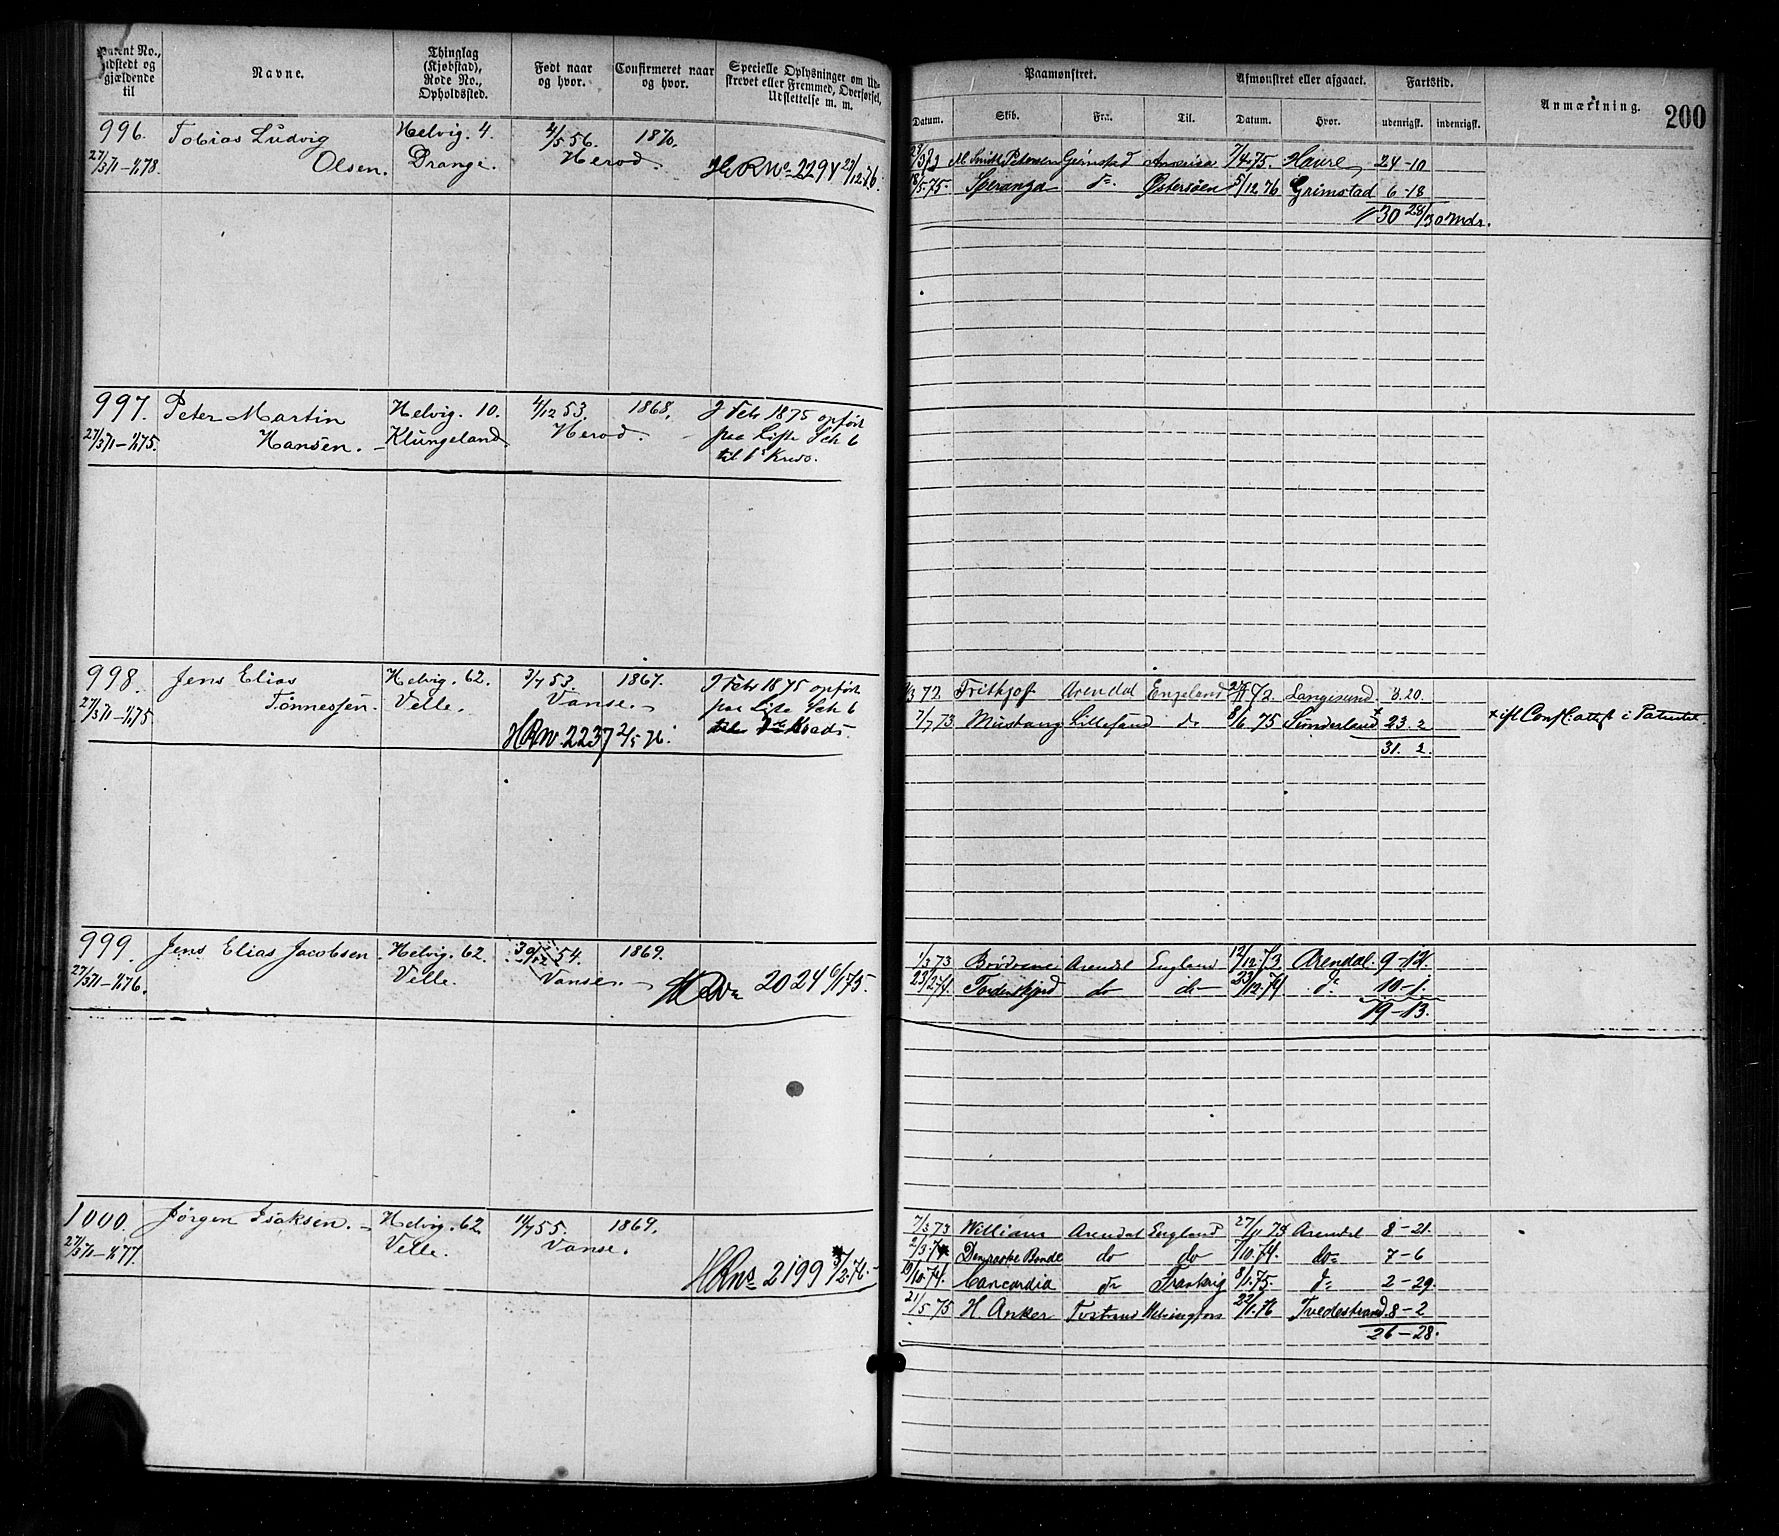 Patent No.,
udstedt og
gjældende
til
Navne.
Thinglag
(Kjøbstad),
Rode No.,
Opholdssted.
Født naar
og hvor.
Confirmeret naar
og hvor.
Specielle Oplysninger om Ud-
skrevet eller Fremmed, Overførsel,
Udslettelse m. m.
996. Tobias Ludvig Helvig. 4. 4/5 56. 1870.
27/3 71 – 1/1 78. Olsen. Drange. Herod. HR No 2294 27/12 76.
997. Peter Martin Helvig. 10. 4/12 53. 1868. I Febr 1875 opført
27/3 71 – 1/1 75. Hansen. – Klungeland Herod. – paa Liste Sch 6
til Krds.
998. Jens Elias Helvig. 62. 3/7 53. 1867. I Febr 1875 opført
27/3 71 – 1/1 75 Tønnessen. Velle. Vanse. – paa Liste Sch 6
HR No 2237 2/5 76.
999. Jens Elias Jacobsen Helvig. 62. 54. 1869.
27/3 71 – 1/1 76. Velle. Vanse. – 2024 6/1 75.
1000. Jørgen Isaksen. – Helvig. 62 11/7 55. 1869.
27/3 71 – 1/1 77. Velle. Vanse.
HR No 2199 3/2 76. –
Paamønstret. Afmønstret eller afgaaet. Fartstid. Anmærkning. 200
Datum. Skib. Fra. Til. Datum. Hvor. udenrigsk. indenrigsk.
M Smith Petersen Grimstad America 7/4 75. Havre 24 – 10
18/5 75. Speranza do. Østersöen 5/12 76 Grimstad 6 – 18
30 28/30 Mdr.
1/3 72. Frithjof Arendal England Langesund. 8. 20.
7/7 73 Mustang Lillesand do 8/6 75 Sunderland x 23. 2 x ifl Conf. attest i Patentet.
31. 2.
1/3 73 Arendal England 12/12 73 Arendal. 9 – 12.
23/2 74. Tordenskjold do do – 23/12 74 do 10 – 1.
19 – 13.
7/3 73 William Arendal England 27/11 73 Arendal 8 – 21.
2/3 74 Bonde do do 7/10 74. do 7 – 6
19/10 74. Concordia do Frankrig 8/1 75. do 2 – 29.
21/5 75 H Anker Helsingfors 22/1 76 Tvedestrand. 8 – 2
26 – 28.